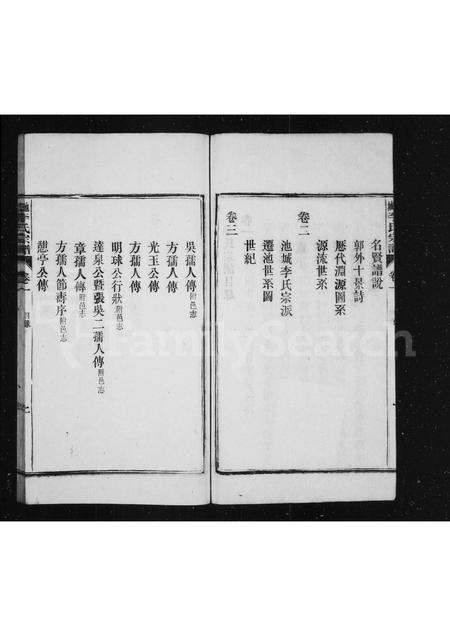 名賢譜說
郭外十景詩
卷二
歷代淵源圖系
源流世系
池城李氏宗派
遷池世系圖
卷三
世紀
吳孺人傳附邑志
方孺人傳
光玉公傳
方孺人傳
明球公行狀附邑志
達泉公暨張吳二孺人傳附邑志
章孺人傳附邑志
方孺人節壽序附邑志
憩亭公傳
李氏宗譜
卷一
目錄
FamilySearch